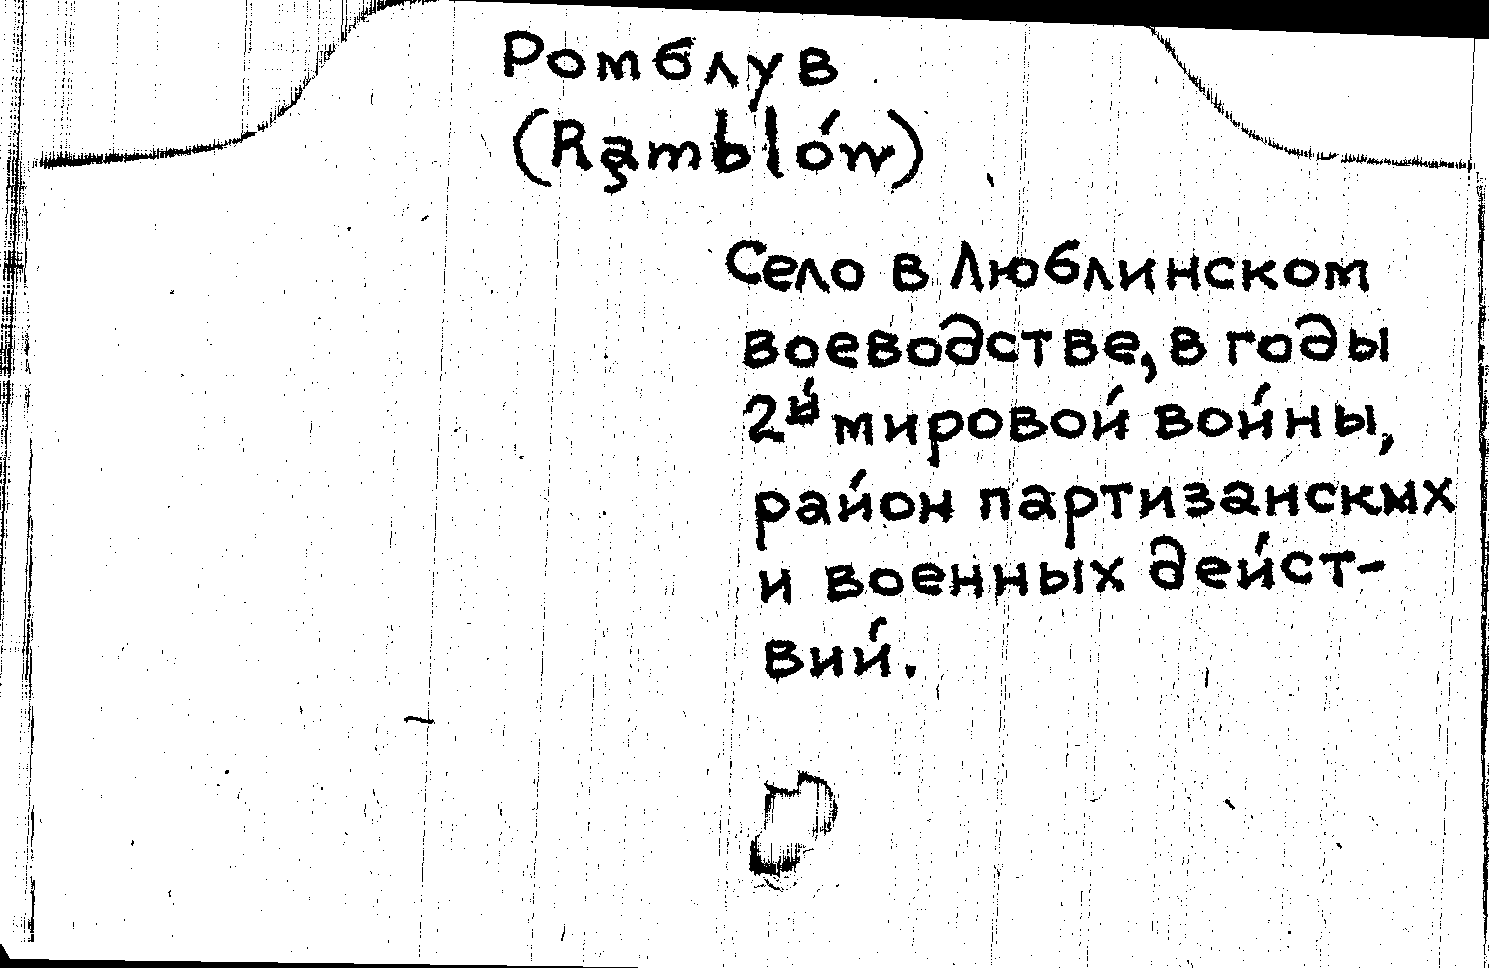 Ромблув
(Rąmblów)
Село в Люблинском
воеводстве, в годы
2й мировой войны,
район партизанских
и военных дейст-
вий.